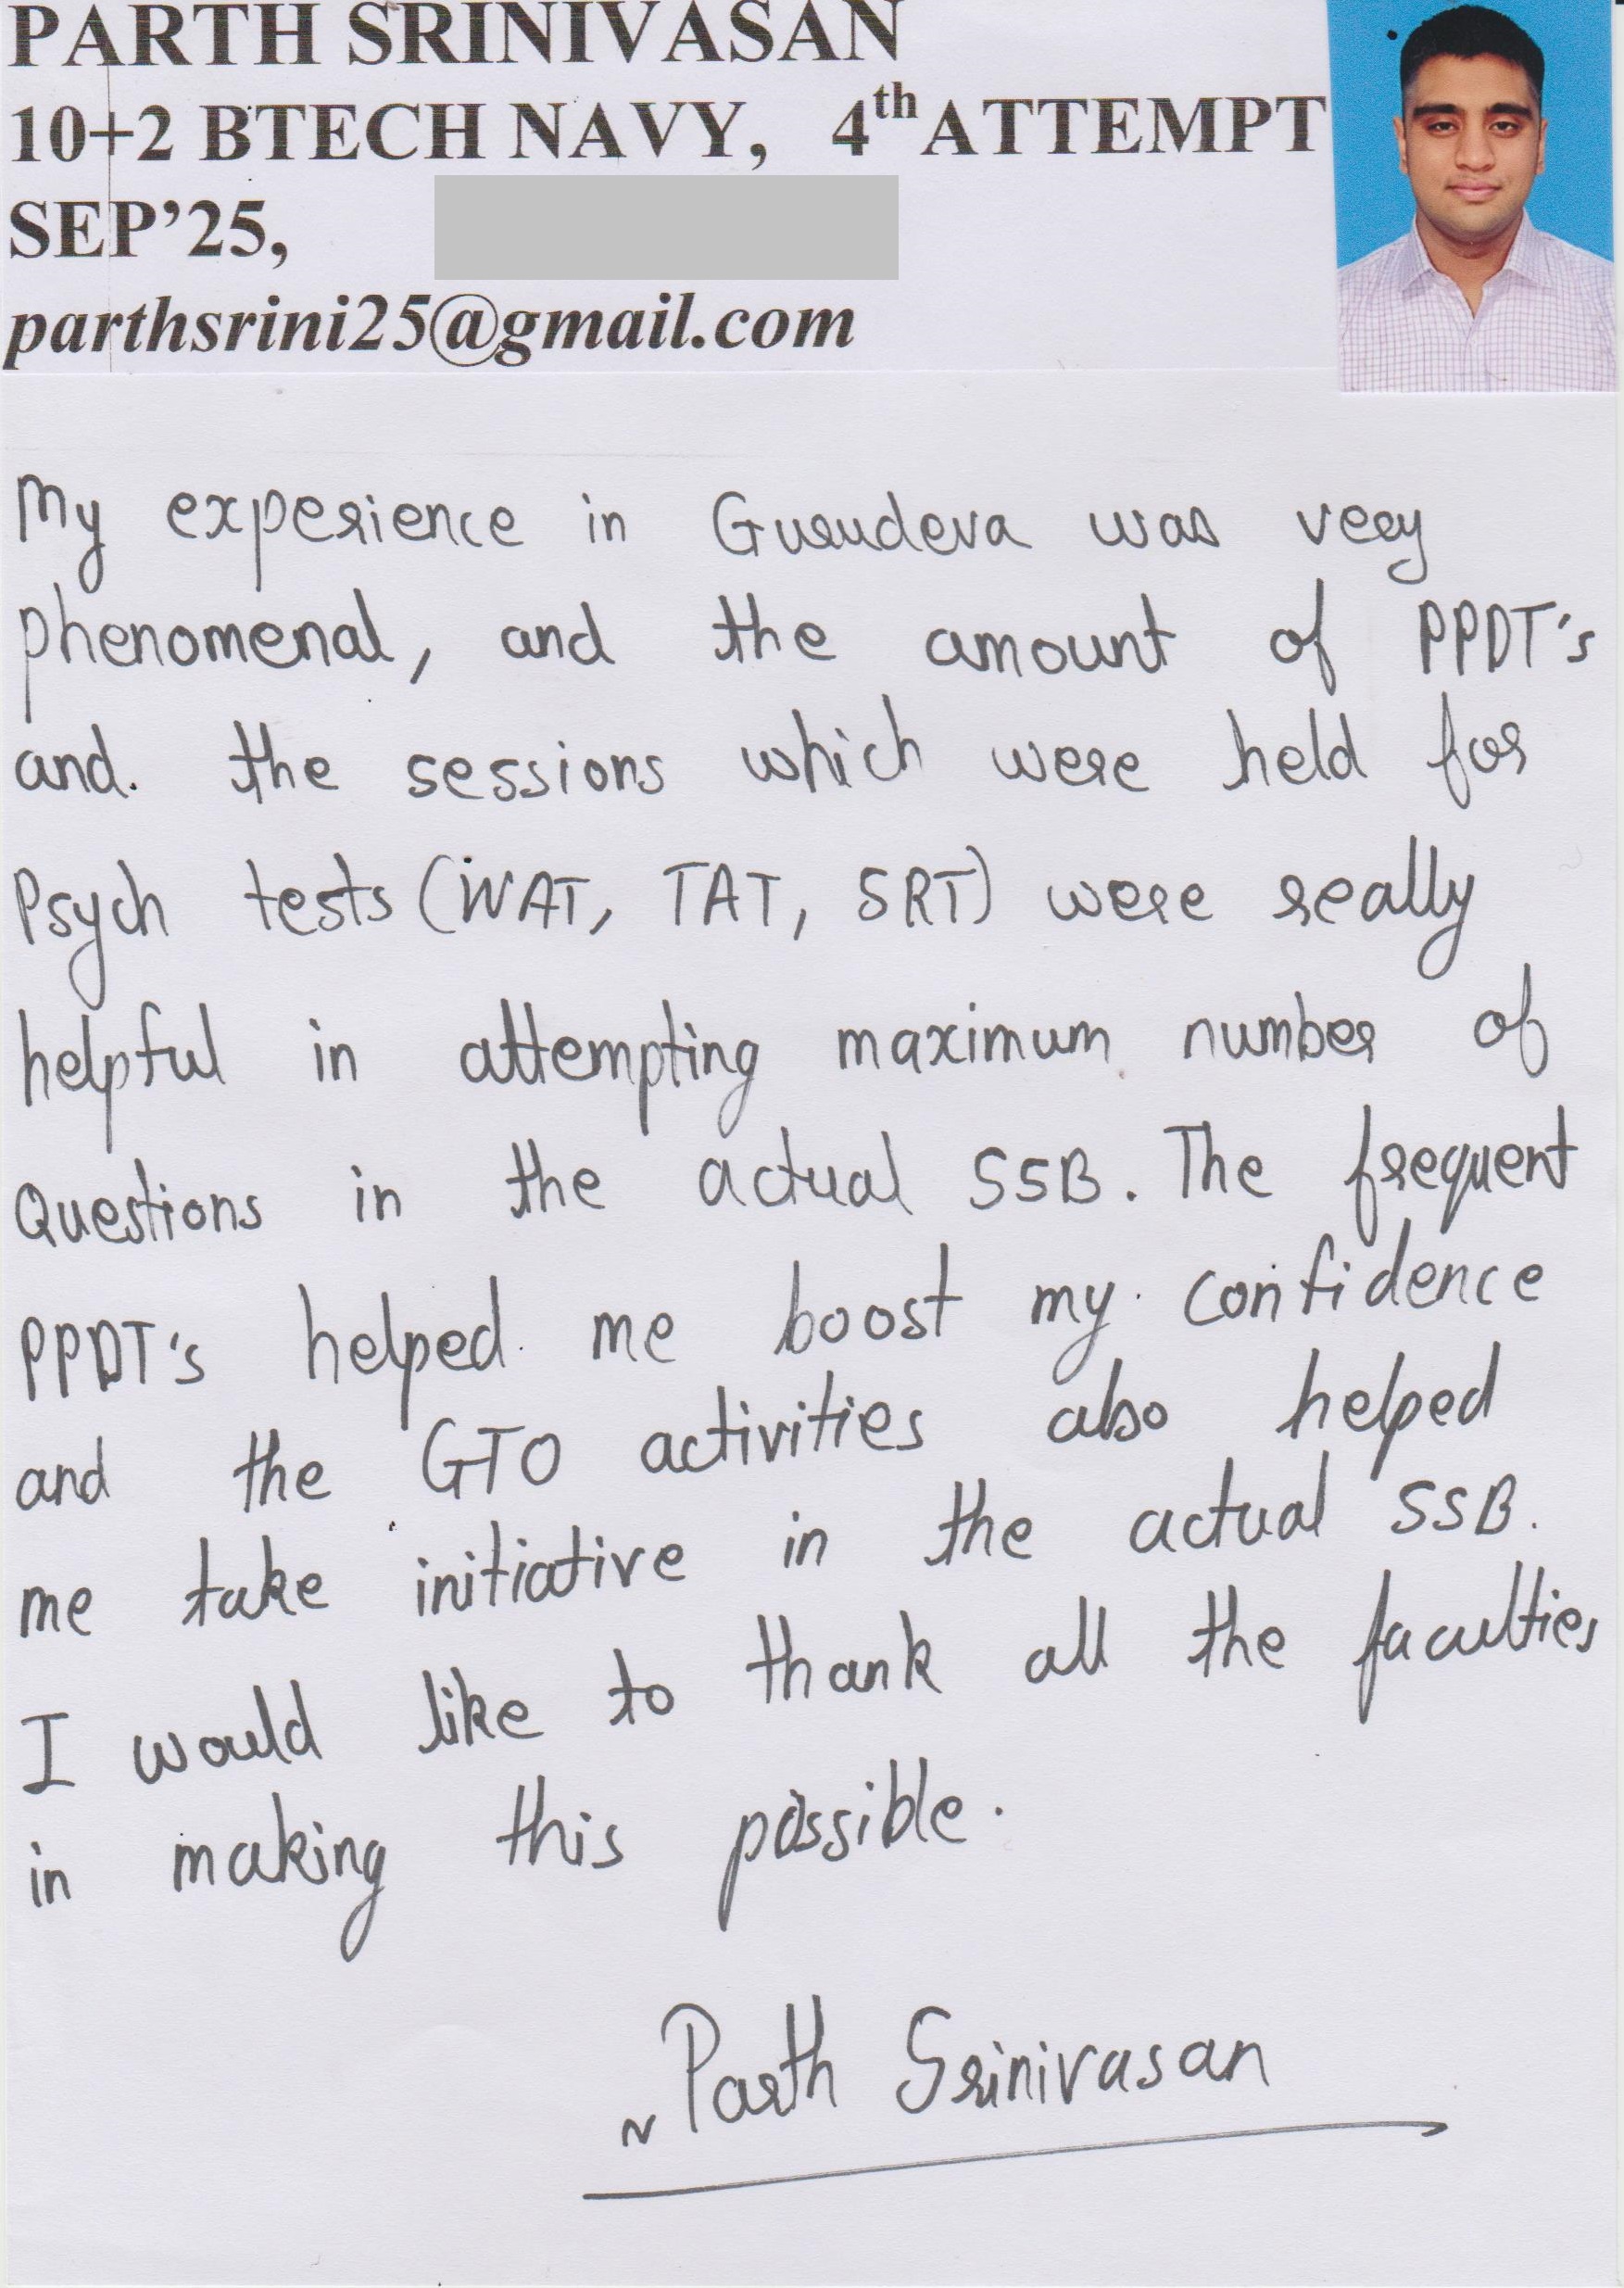 PARTH SRINIVASAN
10+2 BTECH NAVY, 4th ATTEMPT
SEP'25,
parthsrini25@gmail.com
My experience in Gurudeva was very
phenomenal, and the amount of PPDT's
and. the sessions which were held for
Psych tests (WAT, TAT, SRT) were really
helpful in attempting maximum number of
Questions in the actual SSB. The frequent
PPDT's helped me boost my confidence
and the GTO activities also helped
me take initiative in the actual SSB.
I would like to thank all the faculties
in making this possible.
~ Parth Srinivasan